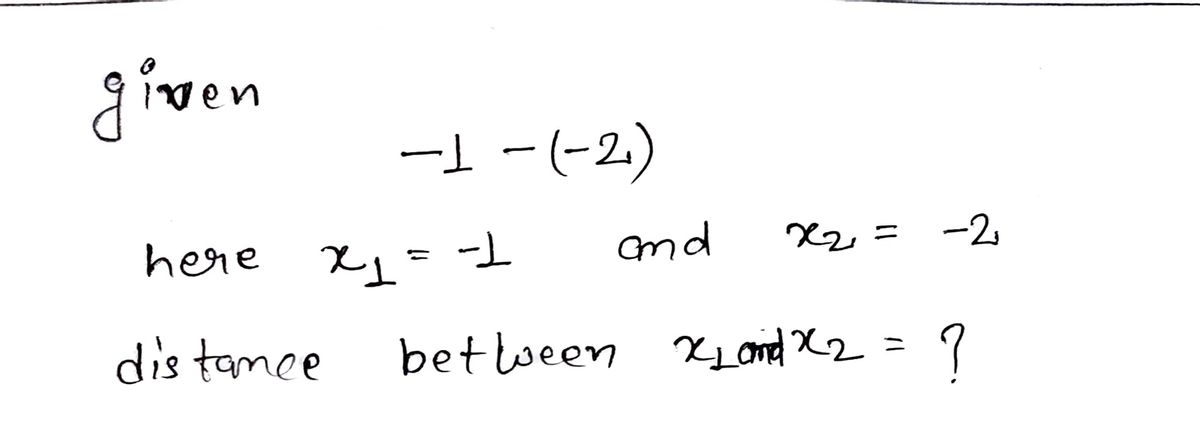 given
-1 - (-2)
here x₁ = -1 and x₂ = -2
distance between x₁ and x₂ = ?